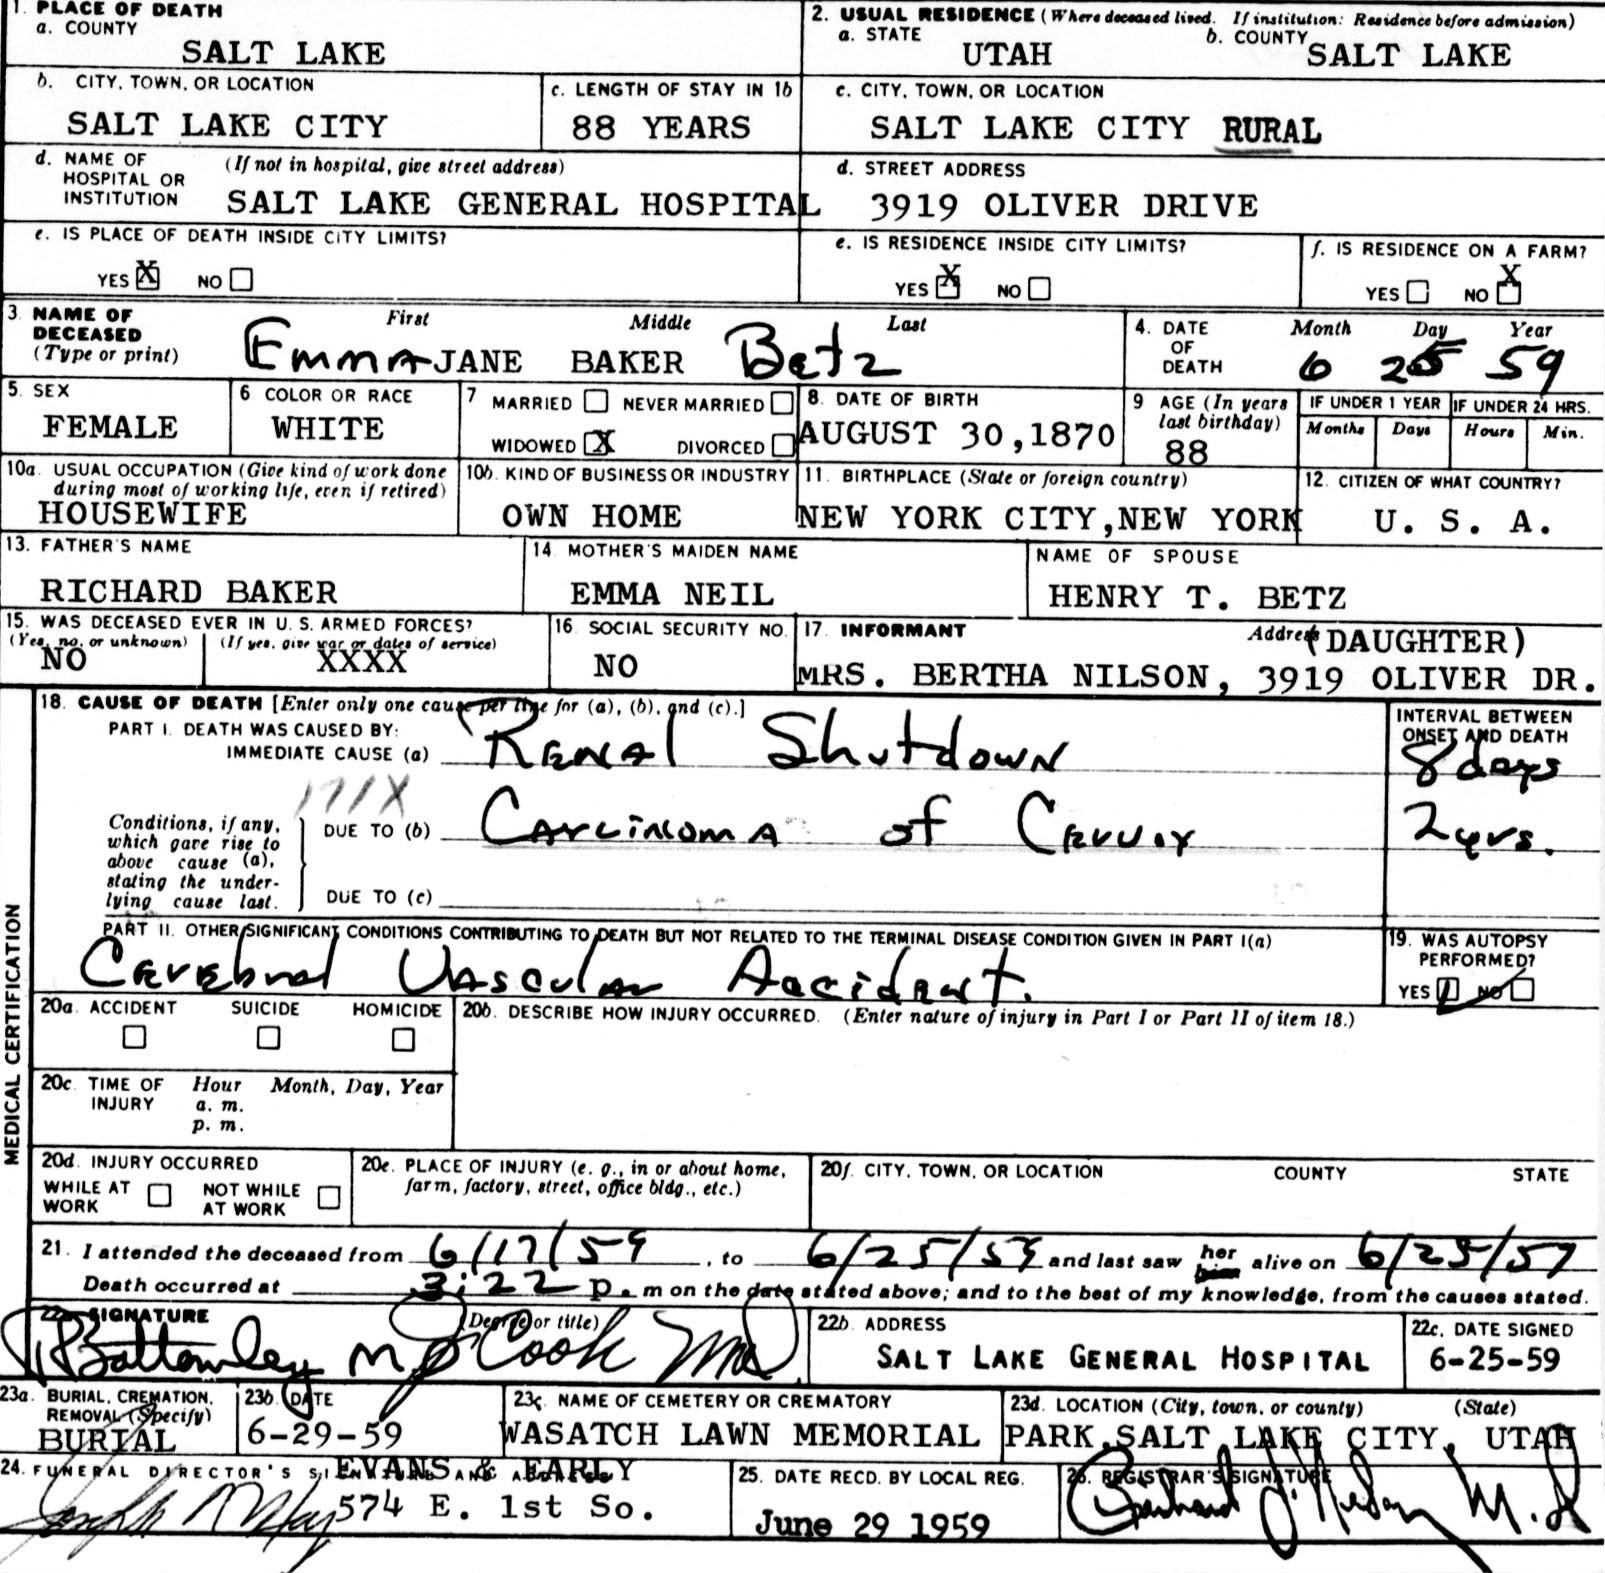 1. PLACE OF DEATH
a. COUNTY
SALT LAKE
2. USUAL RESIDENCE (Where deceased lived. If institution: Residence before admission)
a. STATE UTAH b. COUNTY SALT LAKE
b. CITY, TOWN, OR LOCATION
SALT LAKE CITY
c. LENGTH OF STAY IN 1b
88 YEARS
c. CITY, TOWN, OR LOCATION
SALT LAKE CITY RURAL
d. NAME OF HOSPITAL OR INSTITUTION (If not in hospital, give street address)
SALT LAKE GENERAL HOSPITAL
d. STREET ADDRESS
3919 OLIVER DRIVE
e. IS PLACE OF DEATH INSIDE CITY LIMITS?
YES X NO
e. IS RESIDENCE INSIDE CITY LIMITS?
YES X NO
f. IS RESIDENCE ON A FARM?
YES NO X
3. NAME OF DECEASED (Type or print)
First Middle Last
Emma JANE BAKER Betz
4. DATE OF DEATH
Month Day Year
6 25 59
5. SEX
FEMALE
6 COLOR OR RACE
WHITE
7 MARRIED NEVER MARRIED
WIDOWED X DIVORCED
8. DATE OF BIRTH
AUGUST 30,1870
9 AGE (In years last birthday)
88
IF UNDER 1 YEAR
Months Days
IF UNDER 24 HRS.
Hours Min.
10a. USUAL OCCUPATION (Give kind of work done during most of working life, even if retired)
HOUSEWIFE
10b. KIND OF BUSINESS OR INDUSTRY
OWN HOME
11. BIRTHPLACE (State or foreign country)
NEW YORK CITY,NEW YORK
12. CITIZEN OF WHAT COUNTRY?
U. S. A.
13. FATHER'S NAME
RICHARD BAKER
14. MOTHER'S MAIDEN NAME
EMMA NEIL
NAME OF SPOUSE
HENRY T. BETZ
15. WAS DECEASED EVER IN U. S. ARMED FORCES?
(Yes, no, or unknown) (If yes, give war or dates of service)
NO XXXX
16. SOCIAL SECURITY NO.
NO
17. INFORMANT Address (DAUGHTER)
MRS. BERTHA NILSON, 3919 OLIVER DR.
MEDICAL CERTIFICATION
18. CAUSE OF DEATH [Enter only one cause per line for (a), (b), and (c).]
PART I. DEATH WAS CAUSED BY:
IMMEDIATE CAUSE (a) Renal Shutdown
INTERVAL BETWEEN ONSET AND DEATH
8 days
171X
Conditions, if any, which gave rise to above cause (a), stating the underlying cause last.
DUE TO (b) Carcinoma of Cervix
2 yrs.
DUE TO (c)
PART II. OTHER SIGNIFICANT CONDITIONS CONTRIBUTING TO DEATH BUT NOT RELATED TO THE TERMINAL DISEASE CONDITION GIVEN IN PART I(a)
Cerebral Vascular Accident.
19. WAS AUTOPSY PERFORMED?
YES NO
20a. ACCIDENT SUICIDE HOMICIDE
20b. DESCRIBE HOW INJURY OCCURRED. (Enter nature of injury in Part I or Part II of item 18.)
20c. TIME OF INJURY
Hour Month, Day, Year
a. m.
p. m.
20d. INJURY OCCURRED
WHILE AT WORK NOT WHILE AT WORK
20e. PLACE OF INJURY (e. g., in or about home, farm, factory, street, office bldg., etc.)
20f. CITY, TOWN, OR LOCATION COUNTY STATE
21. I attended the deceased from 6/17/59, to 6/25/59 and last saw her him alive on 6/25/59
Death occurred at 3:22 p. m on the date stated above; and to the best of my knowledge, from the causes stated.
22a. SIGNATURE (Degree or title)
Cook MD
22b. ADDRESS
SALT LAKE GENERAL HOSPITAL
22c. DATE SIGNED
6-25-59
23a. BURIAL, CREMATION, REMOVAL (Specify)
BURIAL
23b. DATE
6-29-59
23c. NAME OF CEMETERY OR CREMATORY
WASATCH LAWN MEMORIAL PARK,
23d. LOCATION (City, town, or county) (State)
SALT LAKE CITY, UTAH
24. FUNERAL DIRECTOR'S SIGNATURE AND ADDRESS
EVANS & EARLY
574 E. 1st So.
25. DATE RECD. BY LOCAL REG.
June 29 1959
26. REGISTRAR'S SIGNATURE
M.D